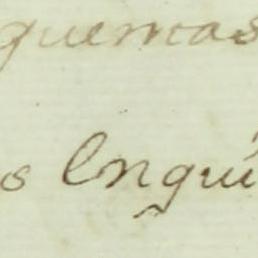 quemas
s Engui